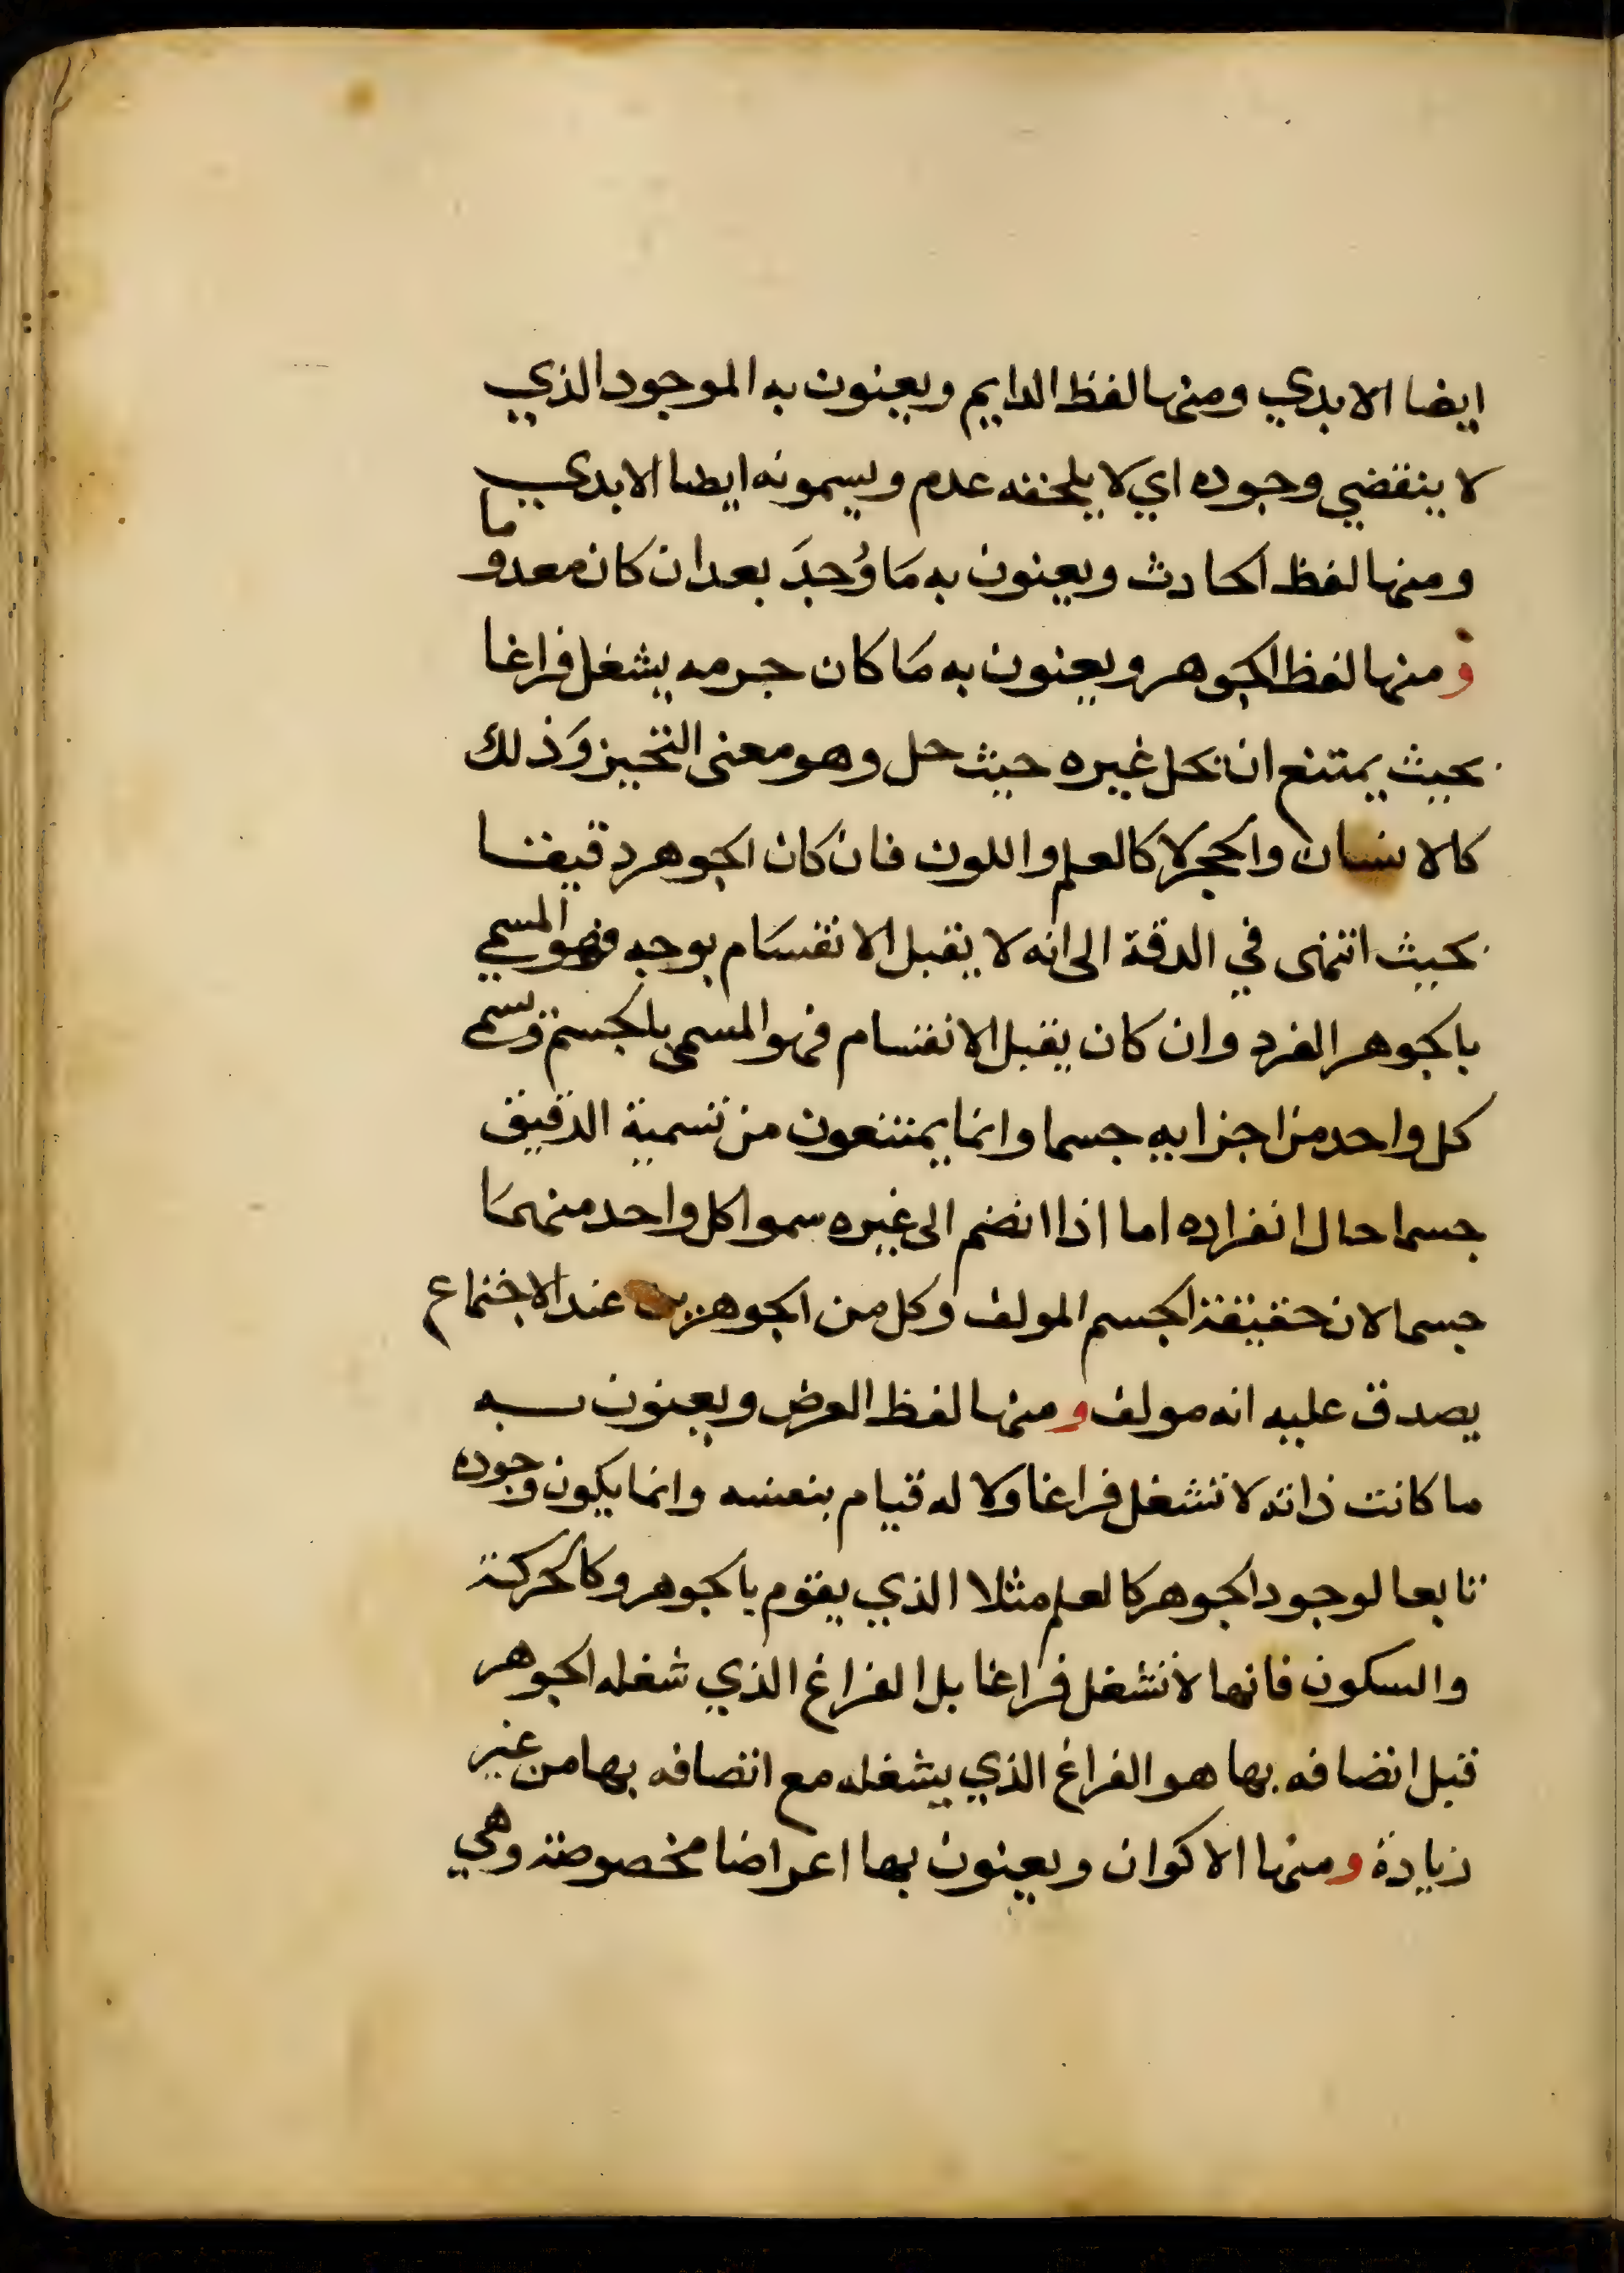 ايضا الابدي ومنها لفظ الدايم ويعنون به الموجود الذي
لا ينقضي وجوده اي لا يلحقه عدم ويسمونه ايضا الابدي
ومنها لفظ الحادث ويعنون به مَا وُجدَ بعد ان كان معدوما
ومنها لفظ الجوهر ويعنون به مَا كان جرمه يشغل فراغا
بحيث يمتنع ان يحل غيره حيث حل وهو معنى التحيز وَذلك
كالانسان والحجر لا كالعلم واللون فان كان الجوهر دقيقا
بحيث انتهى في الدقة الى انه لا يقبل الانقسَام بوجه فهو المسمي
بالجوهر الفرد وان كان يقبل الانقسام فهو المسمى بالجسم وتسمي
كل واحد من اجزايه جسما وانما يمتنعون من تسمية الدقيق
جسما حال انفراده اما اذا انضم الى غيره سموا كل واحد منهمَا
جسما لان حقيقة الجسم المولف وكل من الجوهرين عند الاجتماع
يصدق عليه انه مولف ومنها لفظ العرض ويعنون به
ما كانت ذاته لا تشغل فراغا ولا له قيام بنفسه وانما يكون وجوده
تابعا لوجود الجوهر كالعلم مثلا الذي يقوم بالجوهر وكالحركة
والسكون فانها لا تشغل فراغا بل الفراغ الذي شغله الجوهر
قبل اتصافه بها هو الفراغ الذي يشغله مع اتصافه بها من غير
زيادة ومنها الاكوان ويعنون بها اعراضا مخصوصة وهي